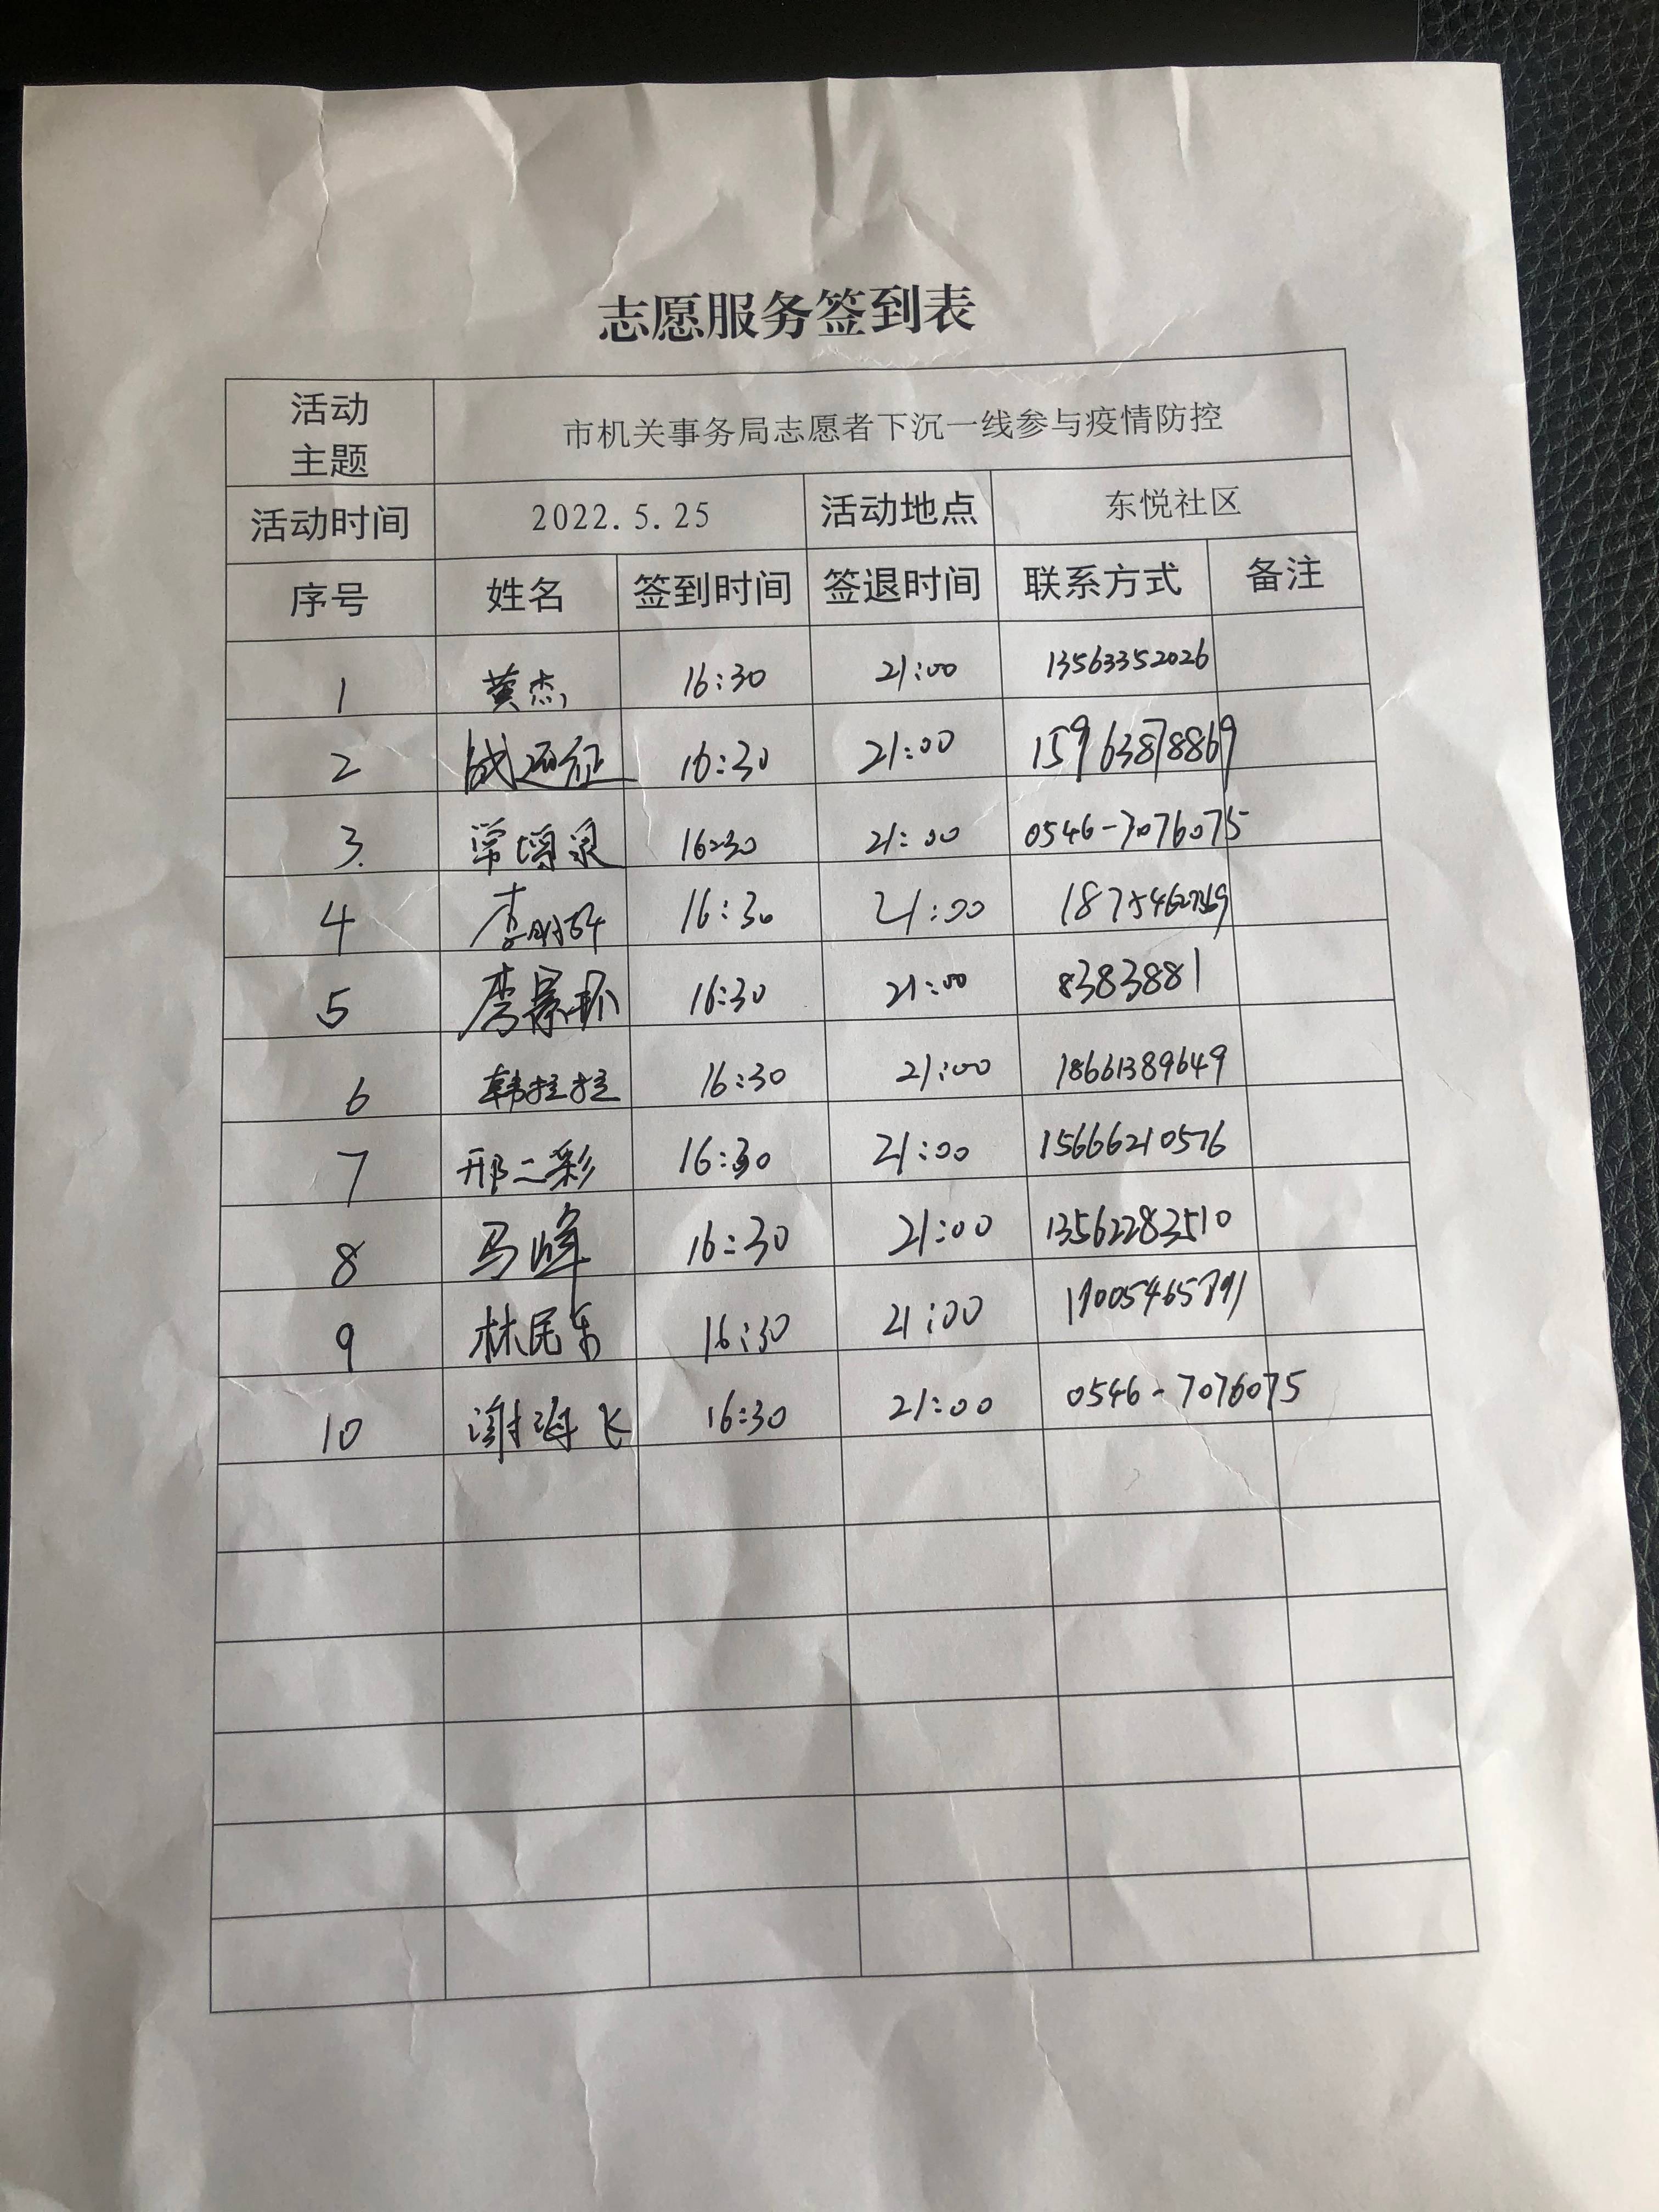 志愿服务签到表
活动主题 市机关事务局志愿者下沉一线参与疫情防控
活动时间 2022.5.25 活动地点 东悦社区
序号 姓名 签到时间 签退时间 联系方式 备注
1 黄杰 16:30 21:00 13563352026
2 16:30 21:00 15963878869
3. 常增泉 16:30 21:00 0546-7076075
4 16:30 21:00
5 李景环 16:30 21:00 8383881
6 韩拉拉 16:30 21:00 18661389649
7 邢二彩 16:30 21:00 15666210576
8 马峰 16:30 21:00 13562283510
9 林民东 16:30 21:00
10 谢海飞 16:30 21:00 0546-7076075